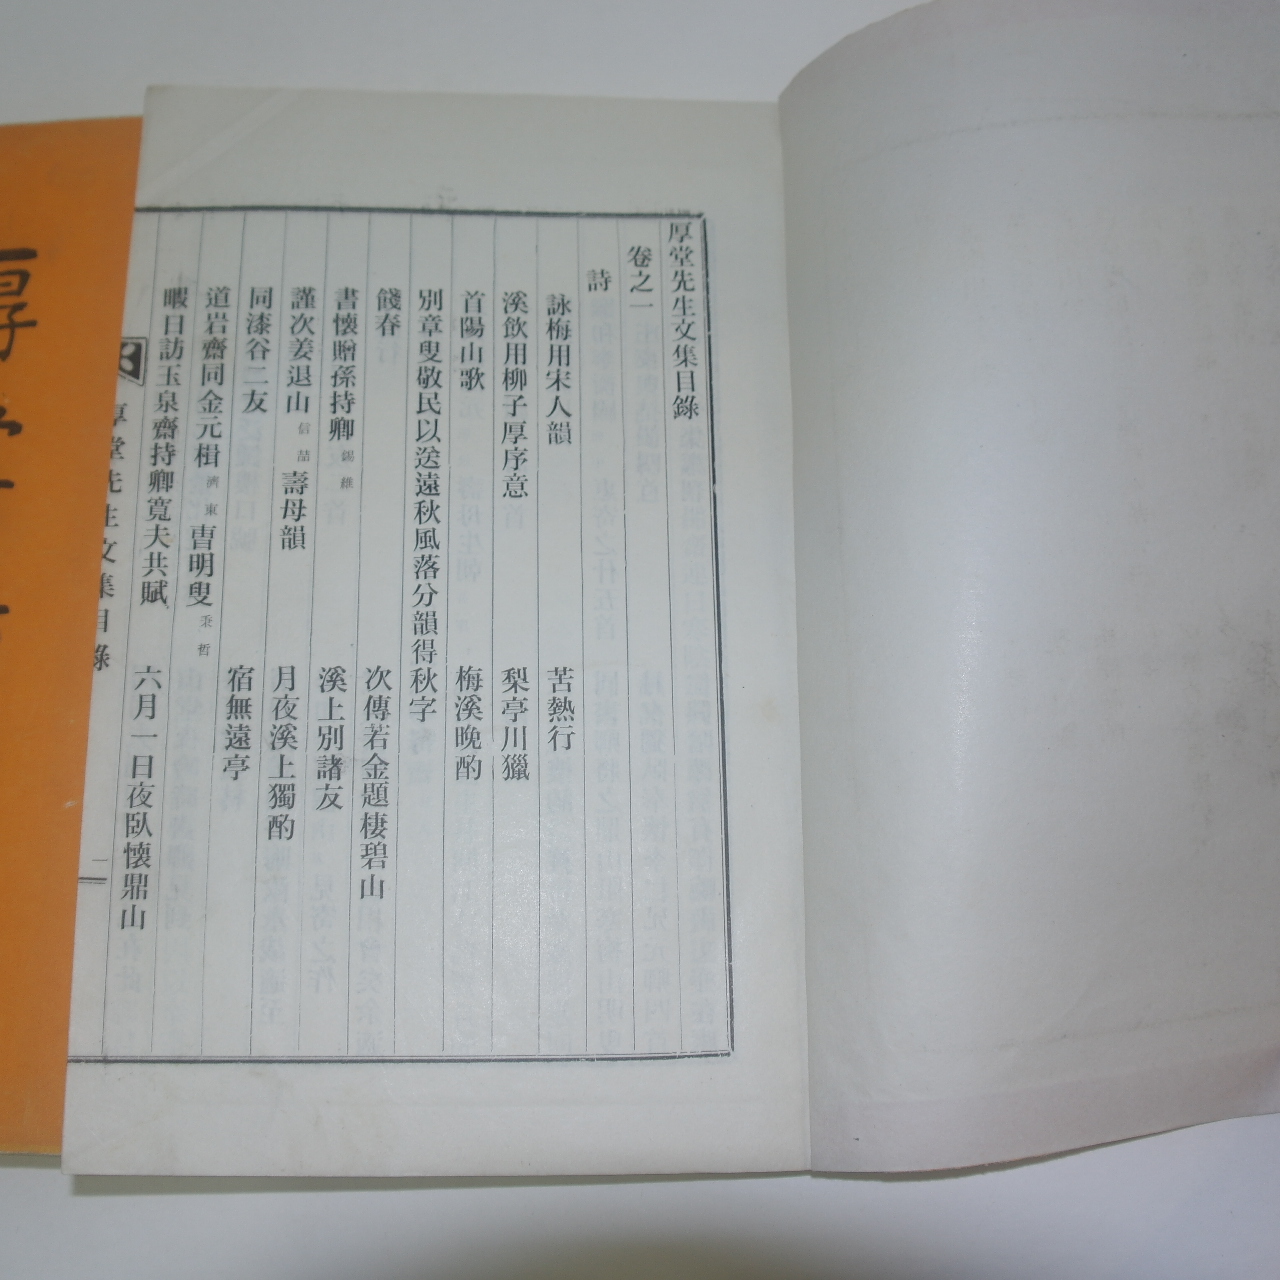 厚堂先生文集目錄
卷之一
詩
詠梅用宋人韻 苦熱行
溪飲用柳子厚序意 梨亭川獵
首陽山歌 梅溪晚酌
別章叟敬民以送遠秋風落分韻得秋字
餞春 次傳若金題棲碧山
書懷贈孫持卿錫維 溪上別諸友
謹次姜退山信喆壽母韻 月夜溪上獨酌
同漆谷二友 宿無遠亭
道岩齋同金元楫濟東曺明叟秉哲
暇日訪玉泉齋持卿寬夫共賦 六月一日夜臥懷鼎山
厚堂先生文集目錄 一